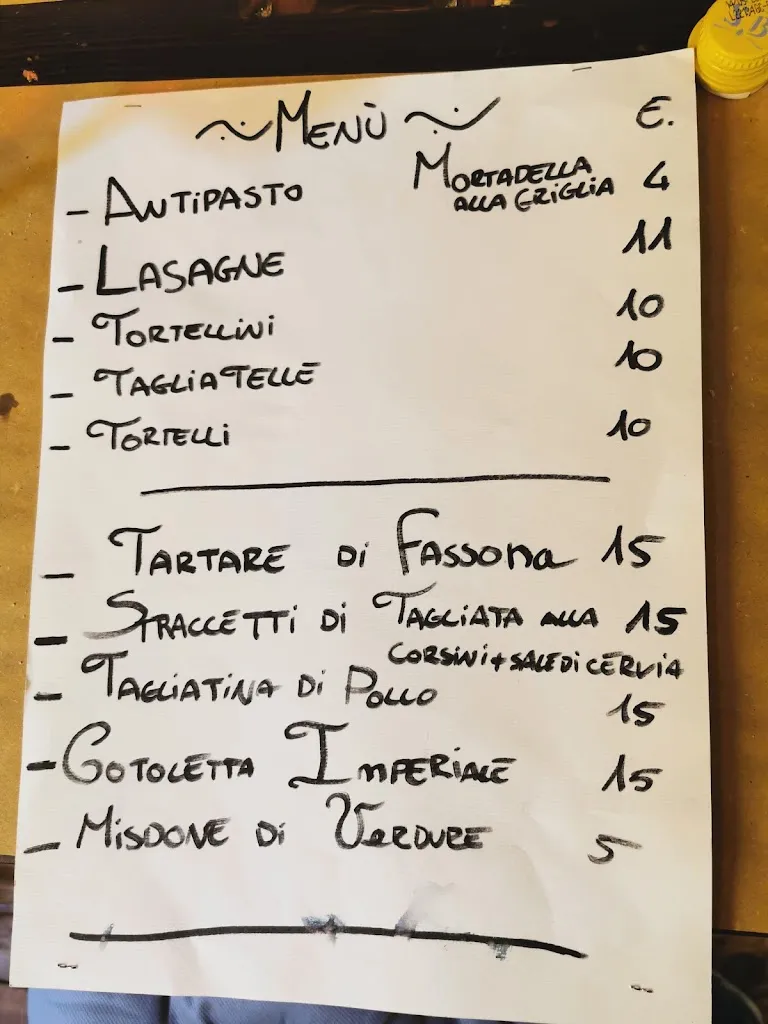 ~ MENÙ ~ E.
- ANTIPASTO MORTADELLA ALLA GRIGLIA 4
- LASAGNE 11
- TORTELLINI 10
- TAGLIATELLE 10
- TORTELLI 10
- TARTARE DI FASSONA 15
- STRACCETTI DI TAGLIATA ALLA 15
CORSINI + SALE DI CERVIA
- TAGLIATINA DI POLLO 15
- COTOLETTA IMPERIALE 15
- MISDONE DI VERDURE 5